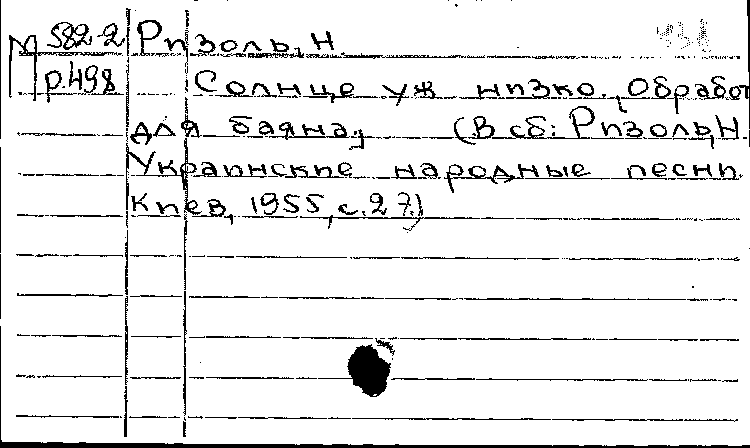 М 582-2 Ризоль, Н.
р.498 Солнце уж низко. [Обработ
для баяна.] (В сб.: Ризоль, Н.
Украинские народные песни.
Киев, 1955, с.27.)